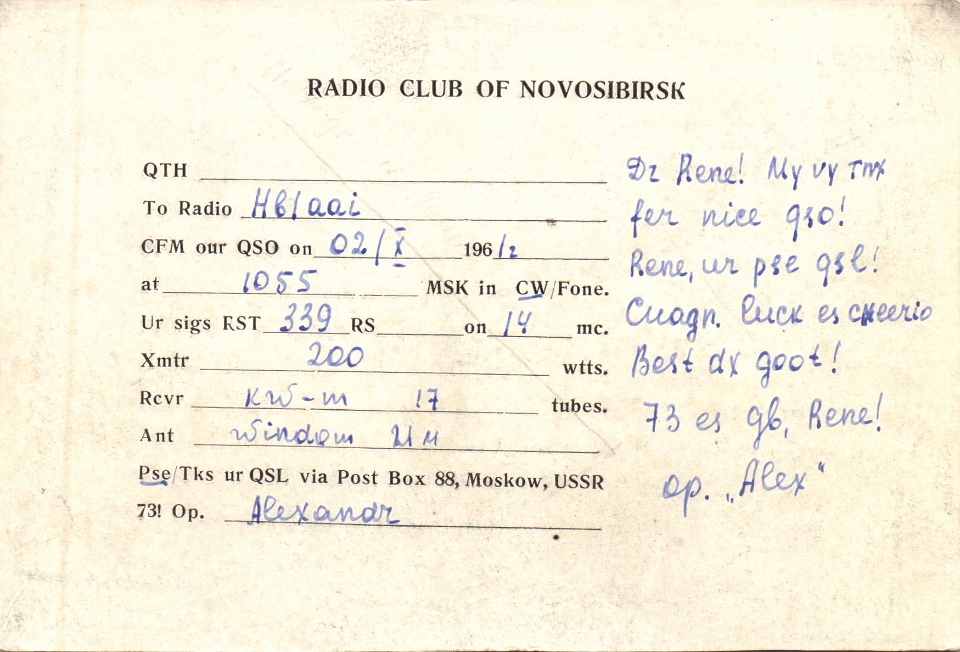 RADIO CLUB OF NOVOSIBIRSK
QTH
To Radio Hb1aai
CFM our QSO on 02/X 1961/2
at 1055 MSK in CW/Fone.
Ur sigs RST 339 RS on 14 mc.
Xmtr 200 wtts.
Rcvr KW-m 17 tubes.
Ant Windom 21 M
Pse/Tks ur QSL via Post Box 88, Moskow, USSR
73! Op. Alexandr
Dr Rene! My vy tnx
fer nice qso!
Rene, ur pse qsl!
Cuagn. luck es cheerio
Best dx goot!
73 es gb, Rene!
op. „Alex“